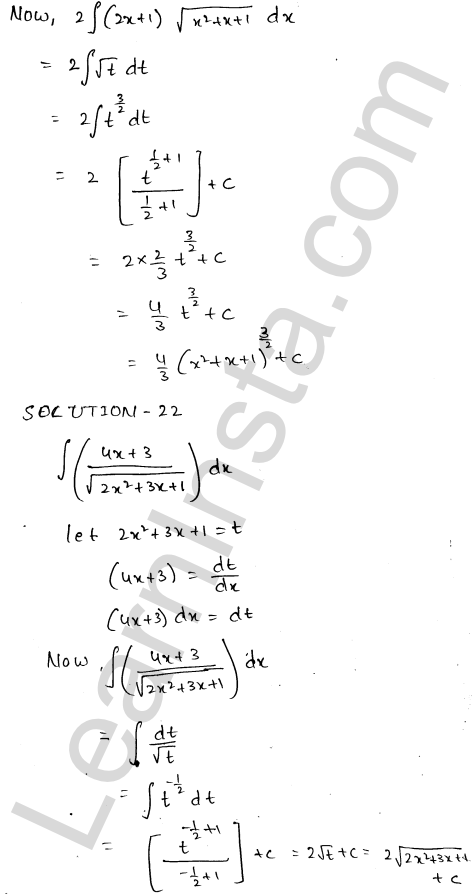 Now, 2∫(2x+1) √(x²+x+1) dx
= 2∫√t dt
= 2∫t^(3/2) dt
= 2 [t^(1/2+1) / (1/2+1)] + c
= 2×2/3 t^(3/2) + c
= 4/3 t^(3/2) + c
= 4/3 (x²+x+1)^(3/2) + c
SOLUTION-22
∫((4x+3)/√(2x²+3x+1)) dx
let 2x²+3x+1 = t
(4x+3) = dt/dx
(4x+3) dx = dt
Now, ∫((4x+3)/√(2x²+3x+1)) dx
= ∫ dt/√t
= ∫t^(-1/2) dt
= [t^(-1/2+1) / (-1/2+1)] + c = 2√t + c = 2√(2x²+3x+1) + c
LearnInsta.com